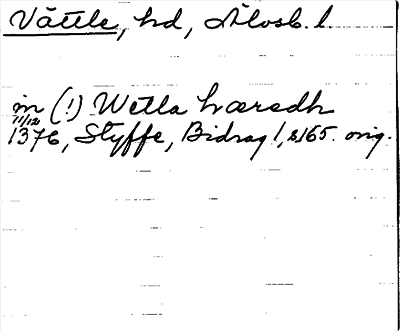 Vättle, hd, Älvsb. l.
in (!) Wetla hæredh
11/12
1376, Styffe, Bidrag 1, s 165. orig.